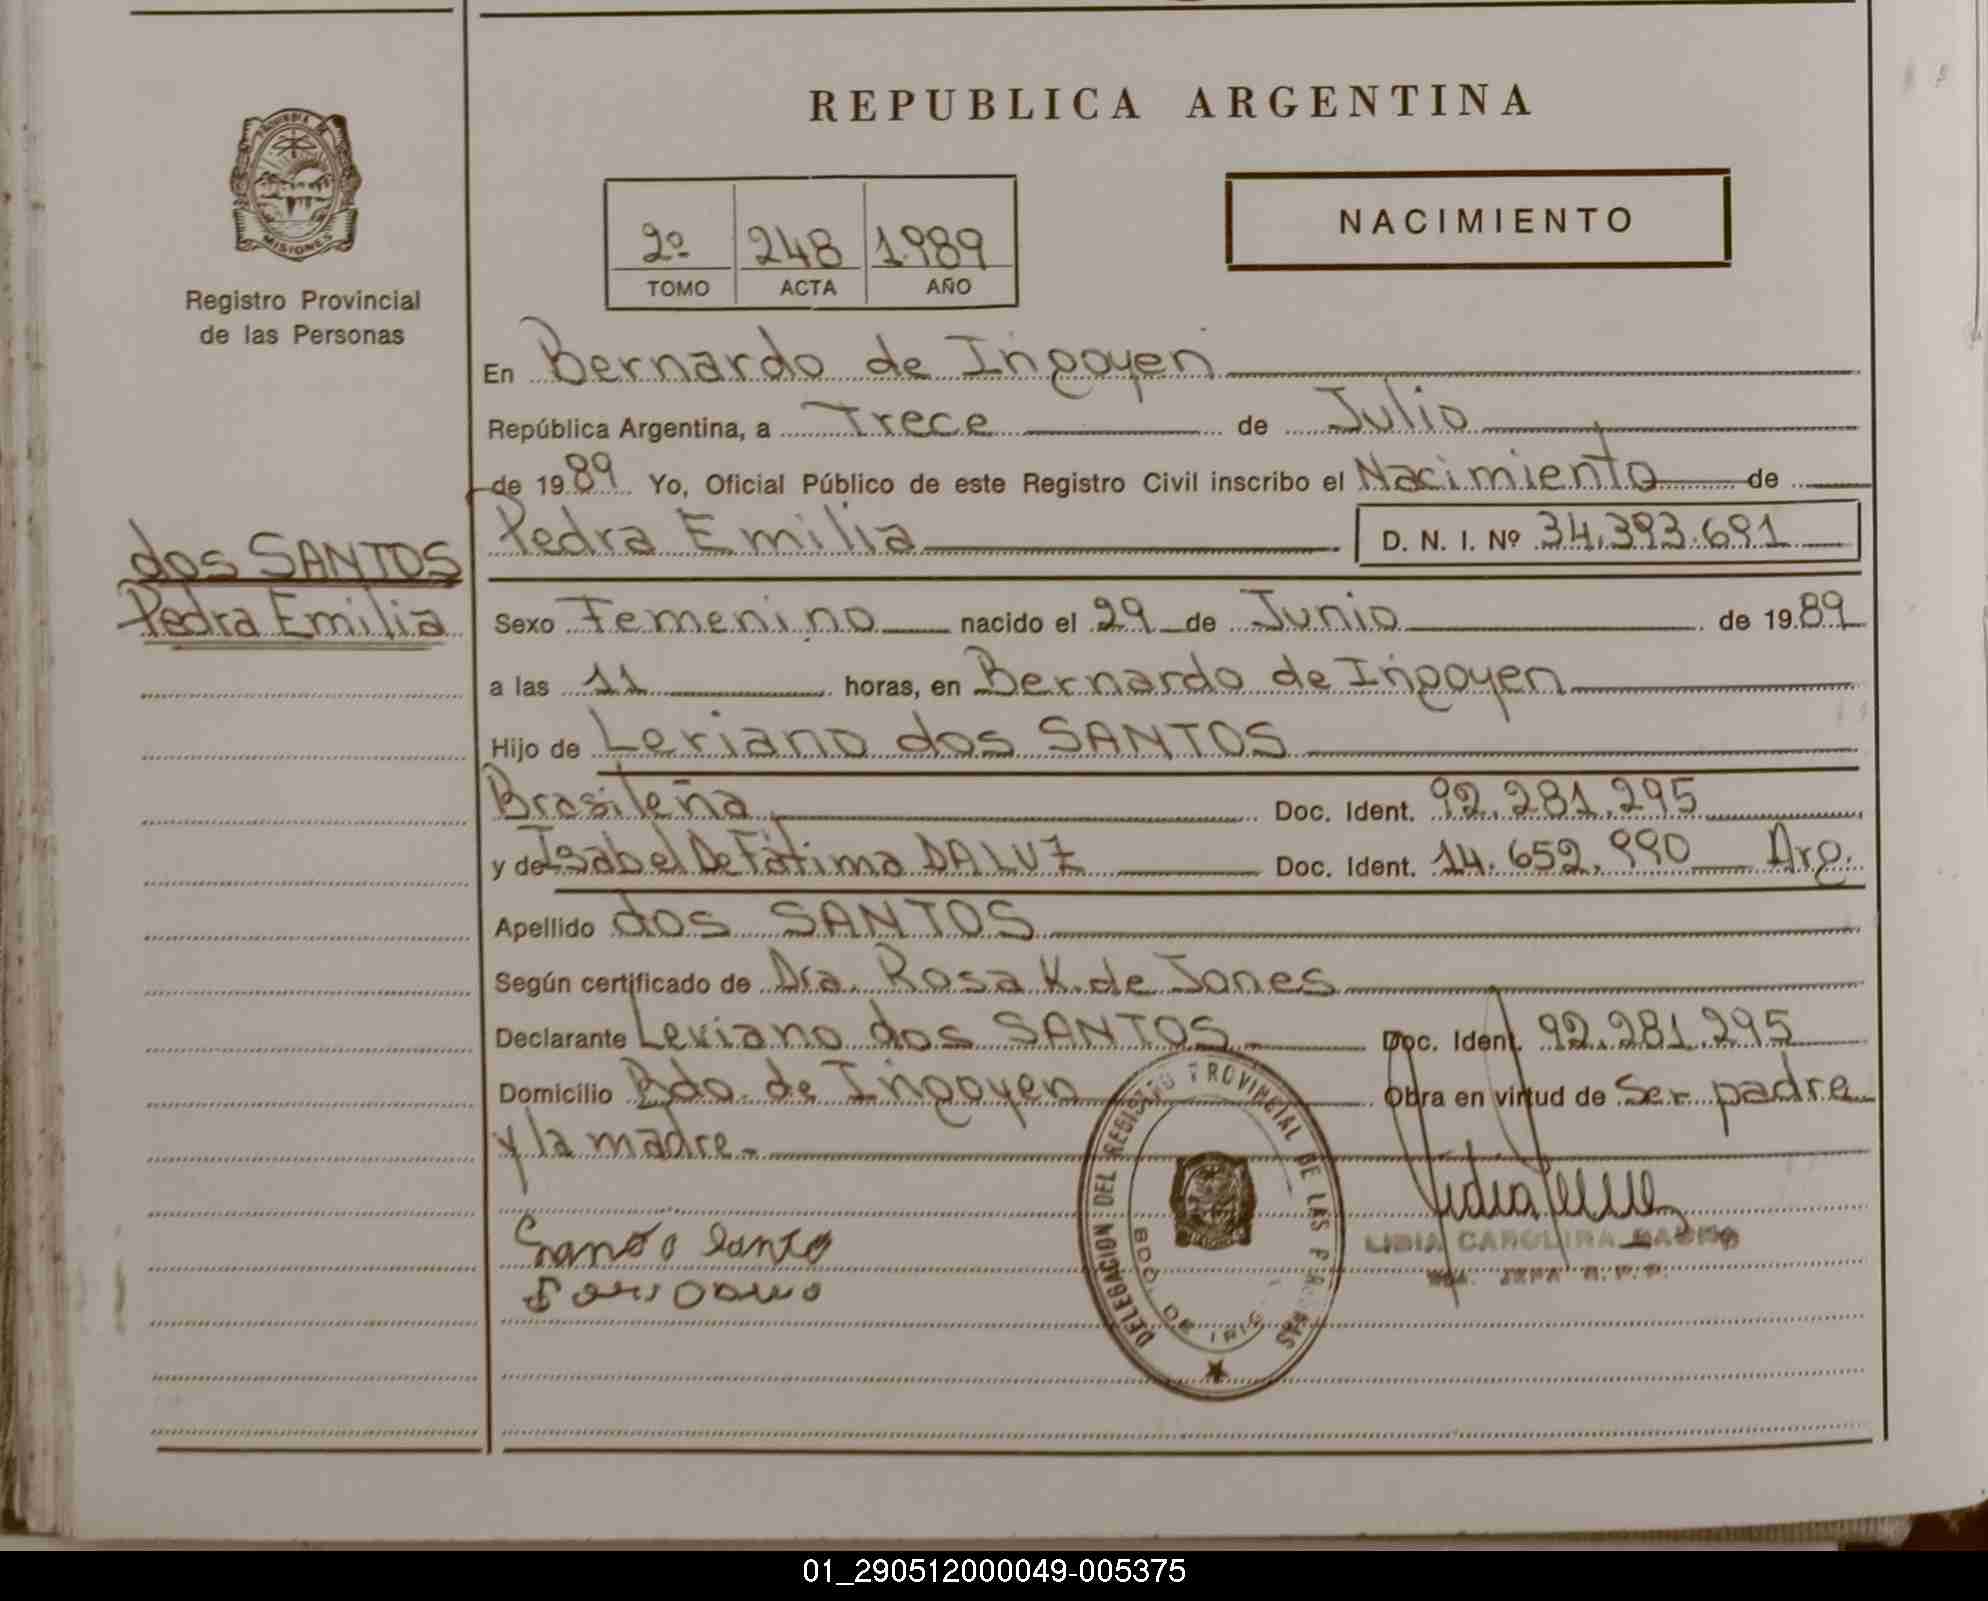 REPUBLICA ARGENTINA
NACIMIENTO
2º 248 1.989
TOMO ACTA AÑO
PROVINCIA DE
MISIONES
Registro Provincial
de las Personas
En Bernardo de Irigoyen
República Argentina, a Trece de Julio
de 1989 Yo, Oficial Público de este Registro Civil inscribo el Nacimiento de
Pedra Emilia D. N. I. Nº 34.393.691
dos SANTOS
Pedra Emilia
Sexo Femenino nacido el 29 de Junio de 1989
a las 11 horas, en Bernardo de Irigoyen
Hijo de Leriano dos SANTOS
Brasileña Doc. Ident. 92.281.295
y de Isabel De Fátima DA LUZ Doc. Ident. 14.652.990 Arg.
Apellido dos SANTOS
Según certificado de Dra. Rosa K. de Jones
Declarante Leriano dos SANTOS Doc. Ident. 92.281.295
Domicilio Bdo. de Irigoyen Obra en virtud de Ser padre
y la madre.-
DELEGACION DEL REGISTRO PROVINCIAL DE LAS PERSONAS
BDO. DE IRIG
LIDIA CAROLINA
01_290512000049-005375